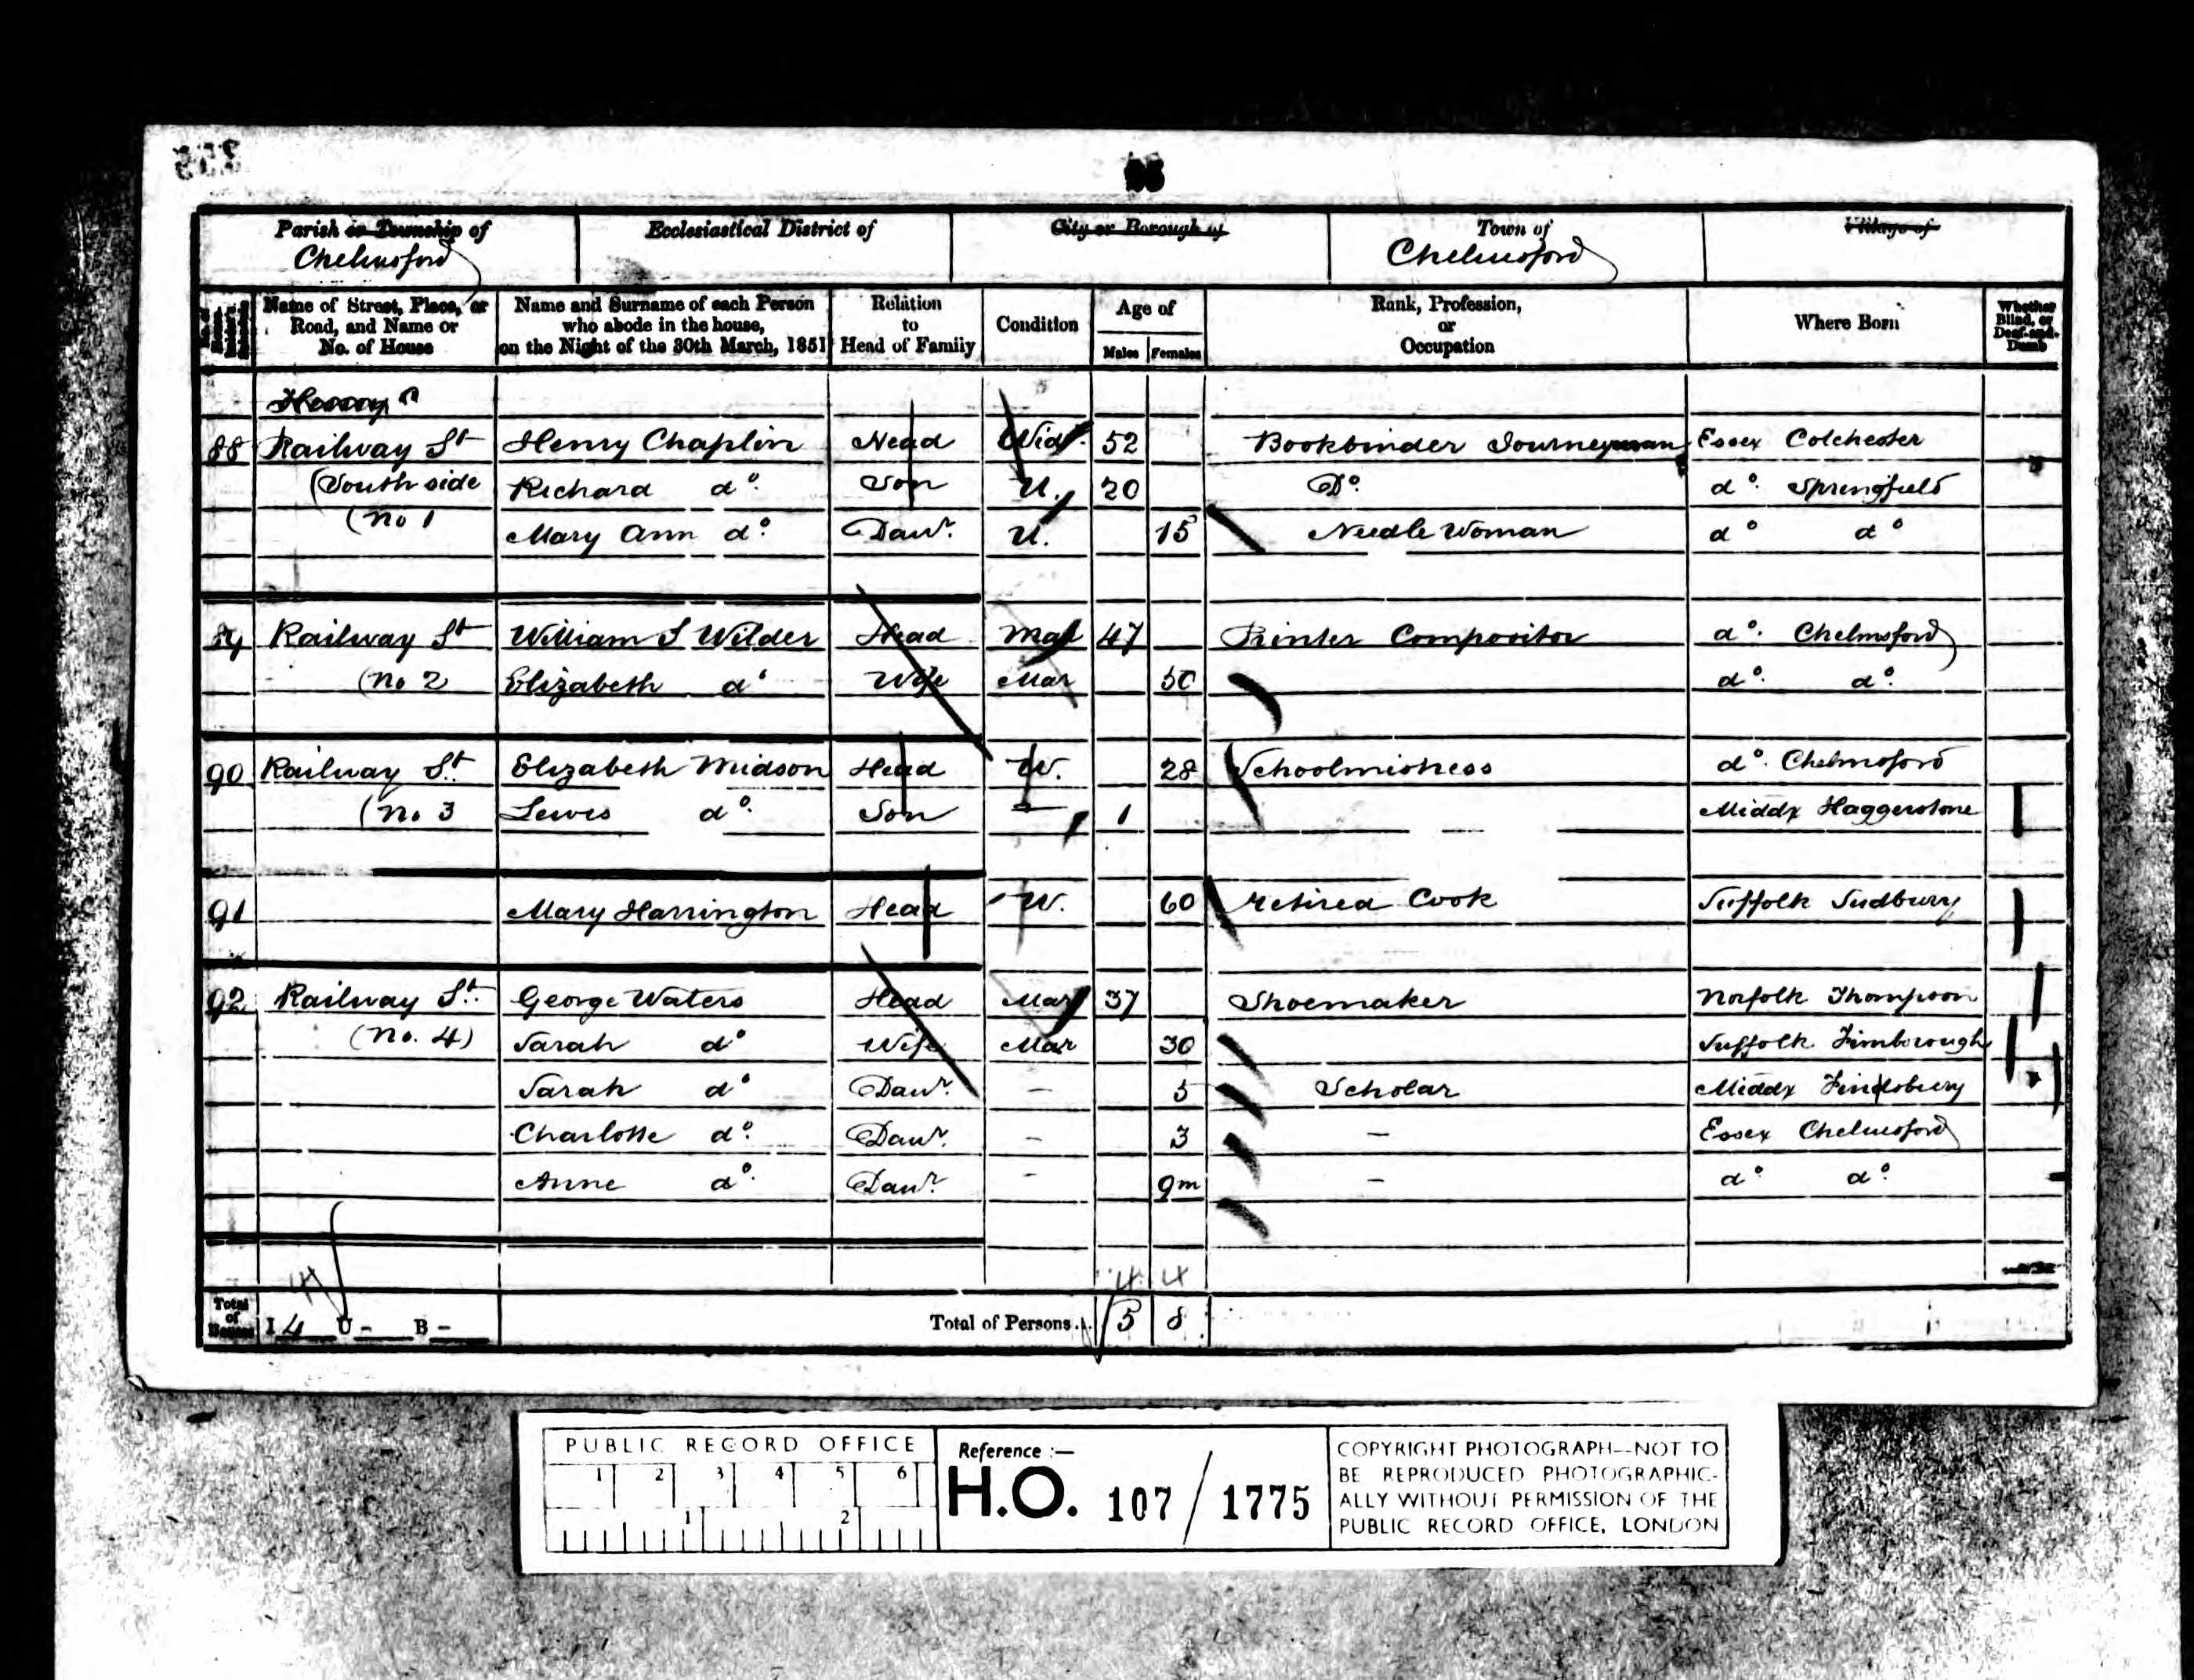 Parish or Township of
Chelmsford
Ecclesiastical District of
City or Borough of
Town of
Chelmsford
Village of
Name of Street, Place, or Road, and Name or No. of House
Name and Surname of each Person who abode in the house, on the Night of the 30th March, 1851
Relation to Head of Family
Condition
Age of
Males Females
Rank, Profession, or Occupation
Where Born
Whether Blind, or Deaf-and-Dumb
88 Railway St Henry Chaplin Head Widr 52 Bookbinder Journeyman Essex Colchester
(South side Richard do. Son U. 20 Do. do. Springfield
(No 1 Mary Ann do. Daur. U. 15 Needle Woman do do
89 Railway St William S Wilder Head Mar 47 Printer Compositor do. Chelmsford
(No 2 Elizabeth do Wife Mar 50 do. do.
90 Railway St. Elizabeth Midson Head W. 28 Schoolmistress do. Chelmsford
(No 3 Lewis do. Son — 1 — Middx Haggerstone
91 Mary Harrington Head W. 60 retired Cook Suffolk Sudbury
92 Railway St. George Waters Head Mar 37 Shoemaker Norfolk Thompson
(No. 4) Sarah do Wife Mar 30 Suffolk Finborough
Sarah do Daur. - 5 Scholar Middx Finsbury
Charlotte do. Daur. - 3 - Essex Chelmsford
Anne do. Daur. - 9m - do do.
4 4
Total of Houses I 4 U - B - Total of Persons... 5 8
PUBLIC RECORD OFFICE
1 2 3 4 5 6
1 2
Reference :—
H.O. 107 / 1775
COPYRIGHT PHOTOGRAPH—NOT TO
BE REPRODUCED PHOTOGRAPHIC-
ALLY WITHOUT PERMISSION OF THE
PUBLIC RECORD OFFICE, LONDON